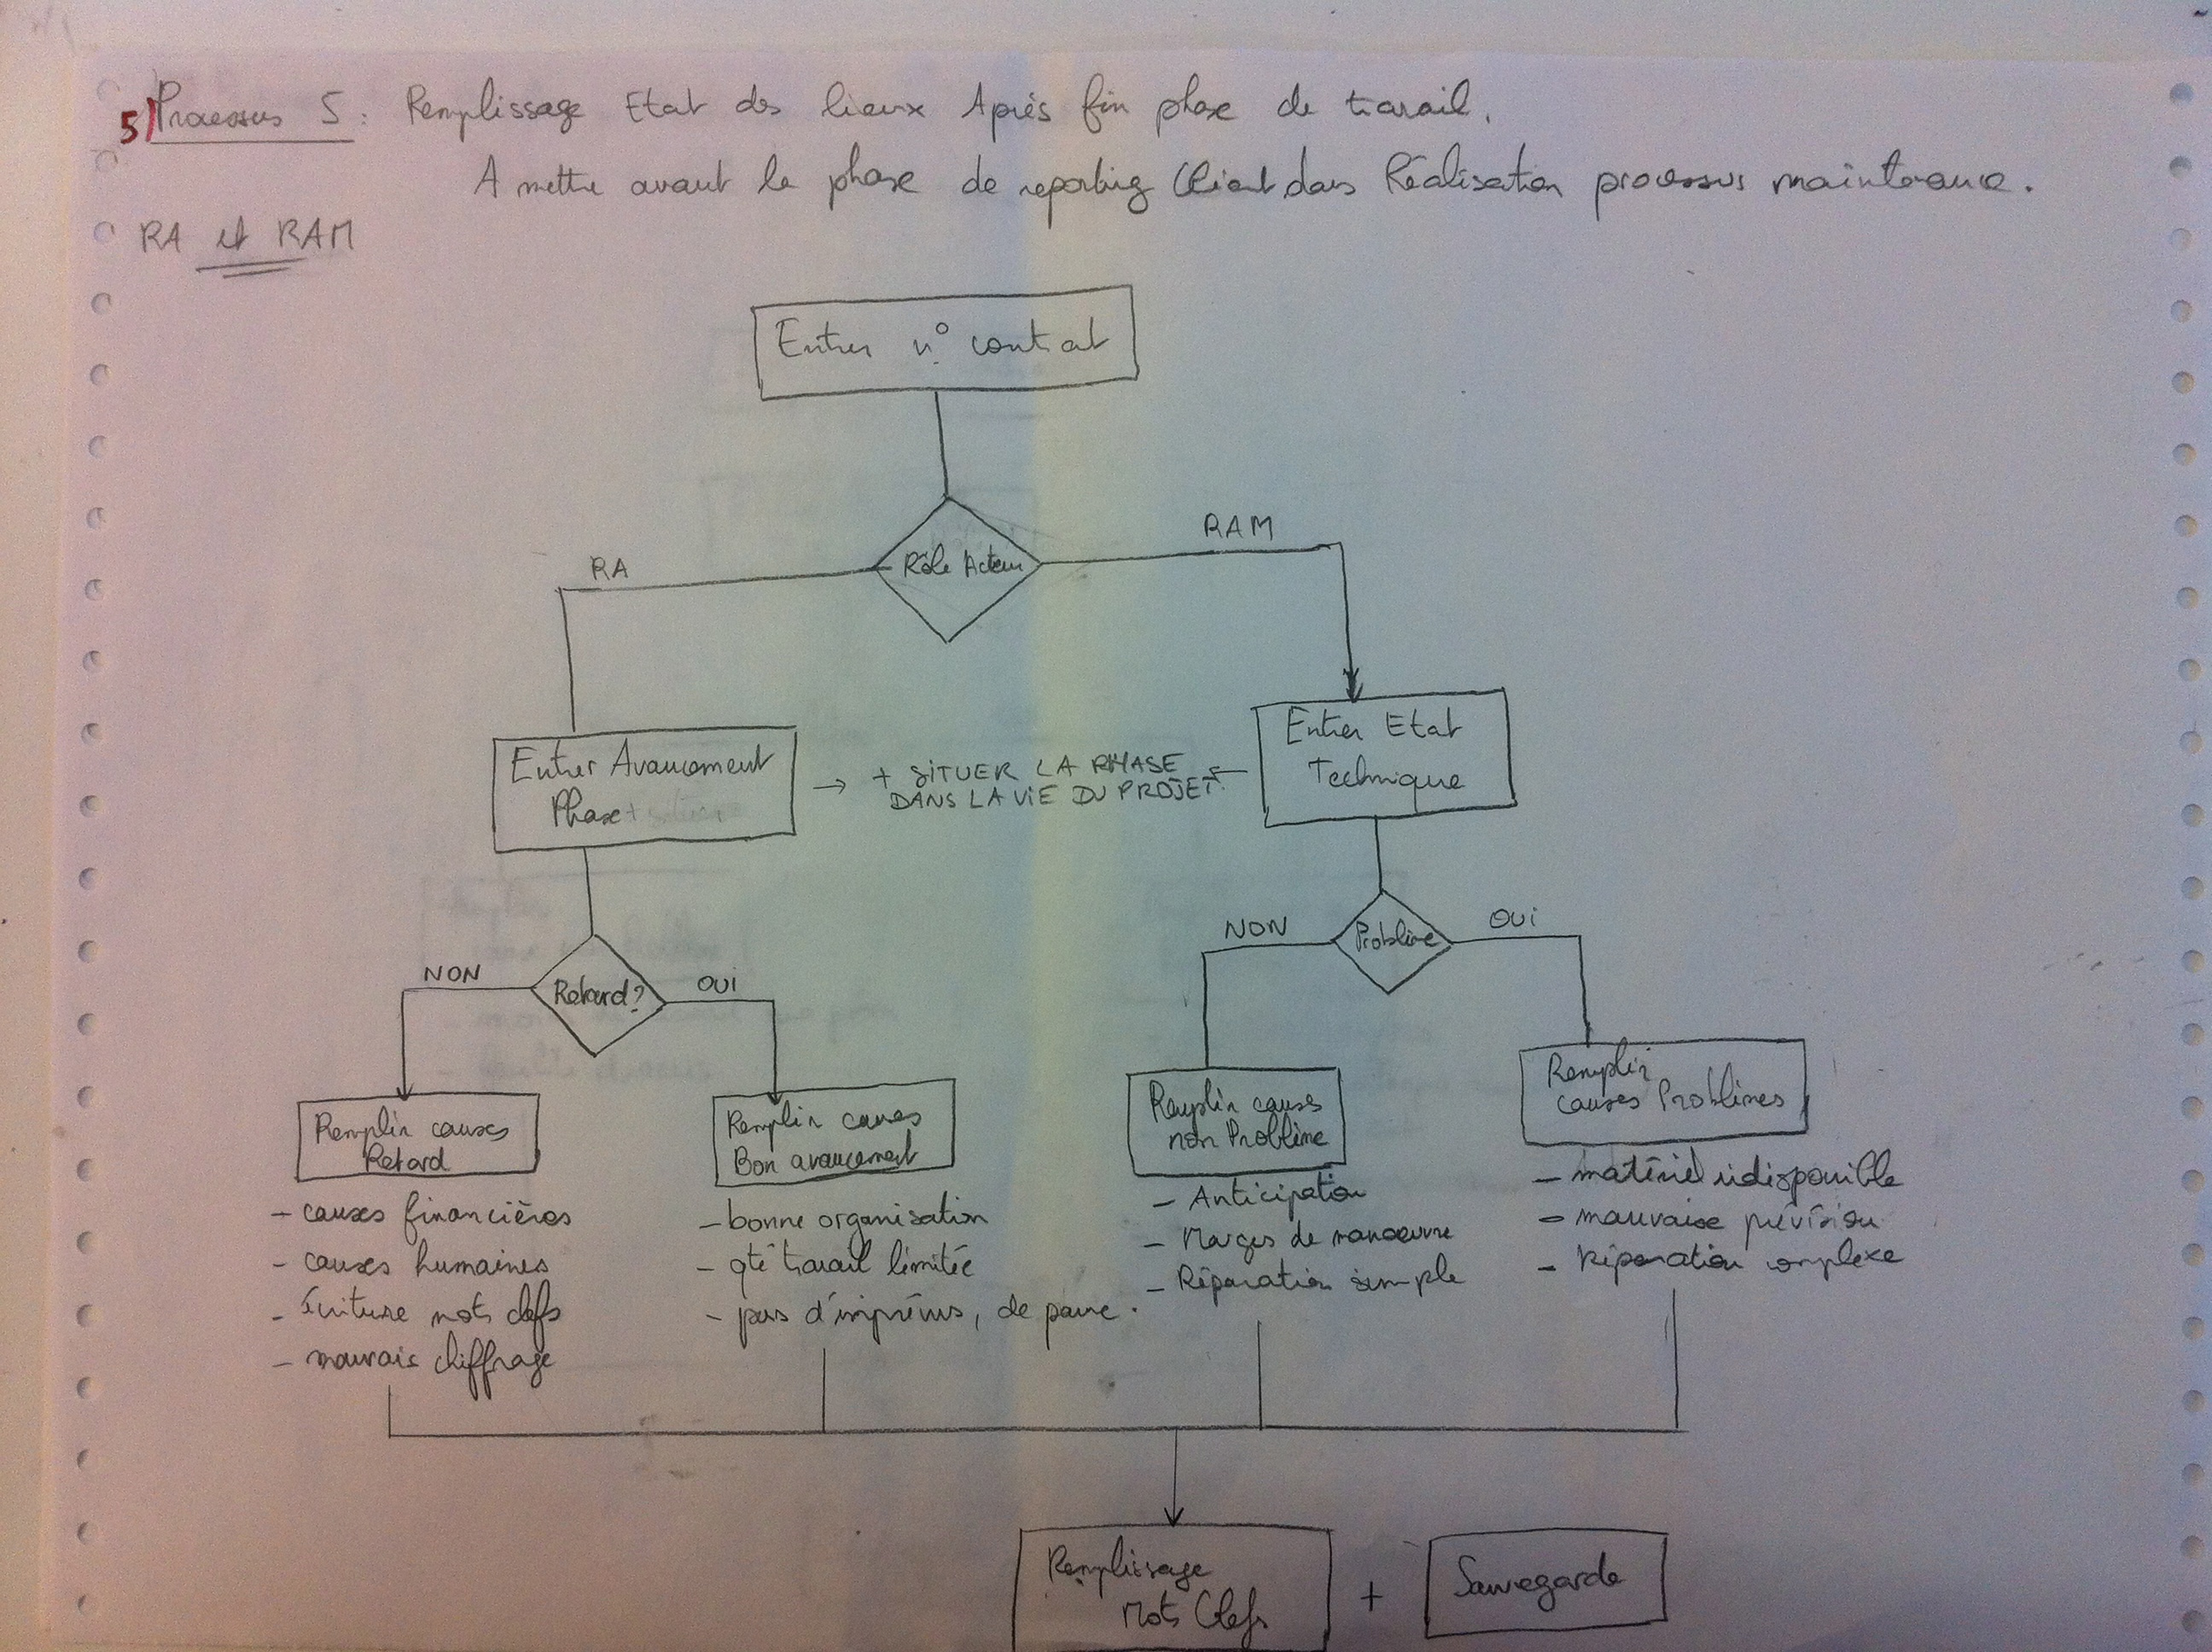 5) Processus 5 : Remplissage Etat des lieux Après fin phase de travail.
A mettre avant la phase de reporting Client dans Réalisation processus maintenance.
RA et RAM
Entrer n° contrat
Rôle Acteur
RA
RAM
Entrer Avancement
Phase +
→ + SITUER LA PHASE ←
DANS LA VIE DU PROJET.
Entrer Etat
Technique
Retard?
NON
OUI
Problème
NON
OUI
Remplir causes
Retard
- causes financières
- causes humaines
- écriture mots clefs
- mauvais chiffrage
Remplir causes
Bon avancement
- bonne organisation
- qté travail limitée
- pas d'imprévus, de panne.
Remplir causes
non Problème
- Anticipation
- Marges de manoeuvre
- Réparation simple
Remplir
causes Problèmes
- matériel indisponible
- mauvaise prévision
- Réparation complexe
Remplissage
Mots Clefs
+
Sauvegarde